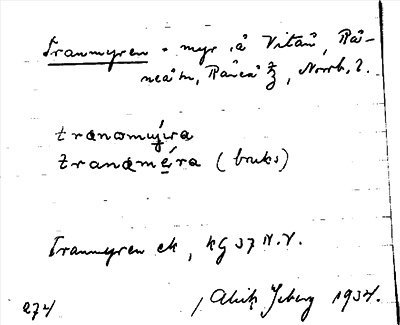 Tranmyren - myr å Vitån, Rå-
neå tn, Råneå tg, Norrb. l.
tranomýra
tranamé̱ra (bruks)
Tranmyren ek, kg 37 N.V.
274
Alrik Iberg 1934.